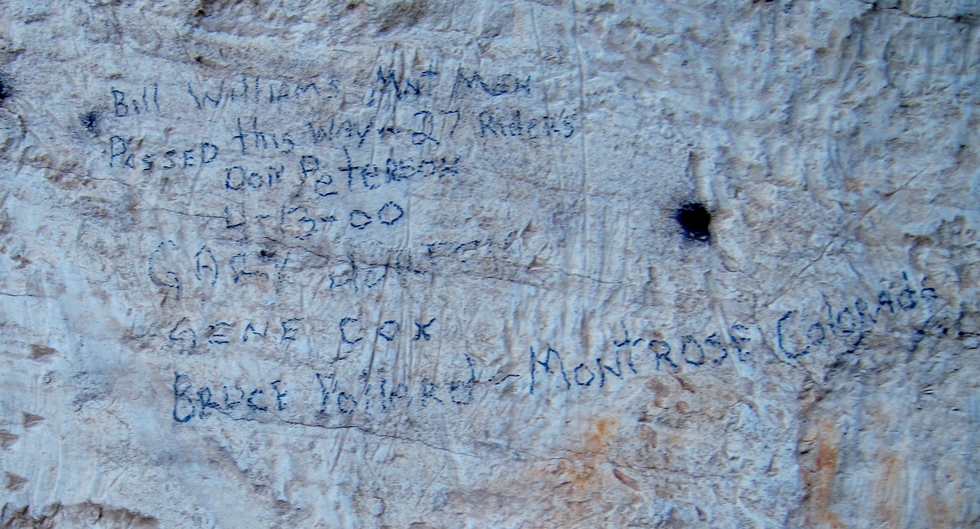 Bill Williams Mnt Men
Passed this Way - 27 Riders
Don Peterson
4-13-00
GARY
GENE COX
BRUCE - MONTROSE COLORADO